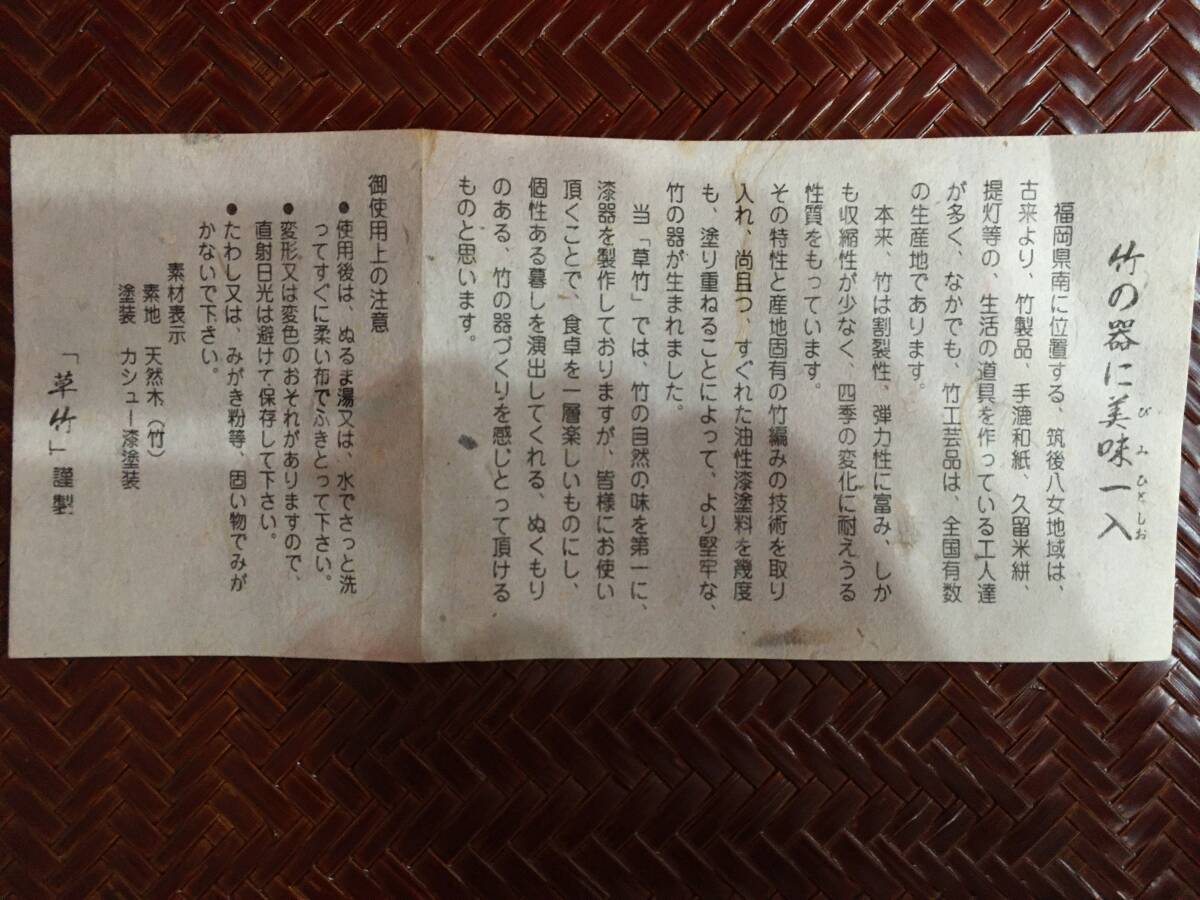 竹の器に美味一入
びみひとしお
福岡県南に位置する、筑後八女地域は、
古来より、竹製品、手漉和紙、久留米絣、
提灯等の、生活の道具を作っている工人達
が多く、なかでも、竹工芸品は、全国有数
の生産地であります。
本来、竹は割裂性、弾力性に富み、しか
も収縮性が少なく、四季の変化に耐えうる
性質をもっています。
その特性と産地固有の竹編みの技術を取り
入れ、尚且つ、すぐれた油性漆塗料を幾度
も、塗り重ねることによって、より堅牢な、
竹の器が生まれました。
当「草竹」では、竹の自然の味を第一に、
漆器を製作しておりますが、皆様にお使い
頂くことで、食卓を一層楽しいものにし、
個性ある暮しを演出してくれる、ぬくもり
のある、竹の器づくりを感じとって頂ける
ものと思います。
御使用上の注意
●使用後は、ぬるま湯又は、水でさっと洗
ってすぐに柔い布でふきとって下さい。
●変形又は変色のおそれがありますので、
直射日光は避けて保存して下さい。
●たわし又は、みがき粉等、固い物でみが
かないで下さい。
素材表示
素地 天然木(竹)
塗装 カシュー漆塗装
「草竹」謹製